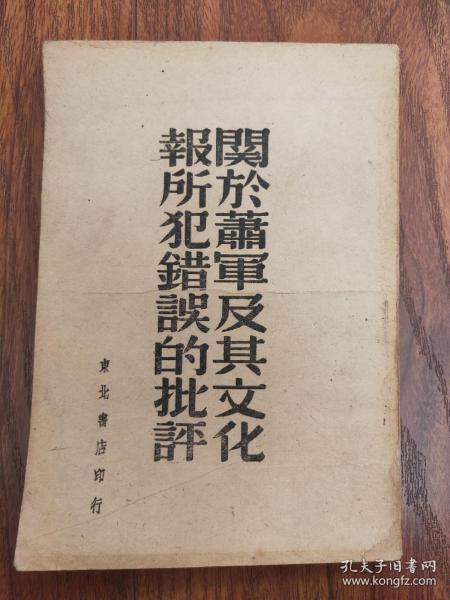 関於蕭軍及其文化
報所犯錯誤的批評
東北書店印行
孔夫子旧书网
www.kongfz.com